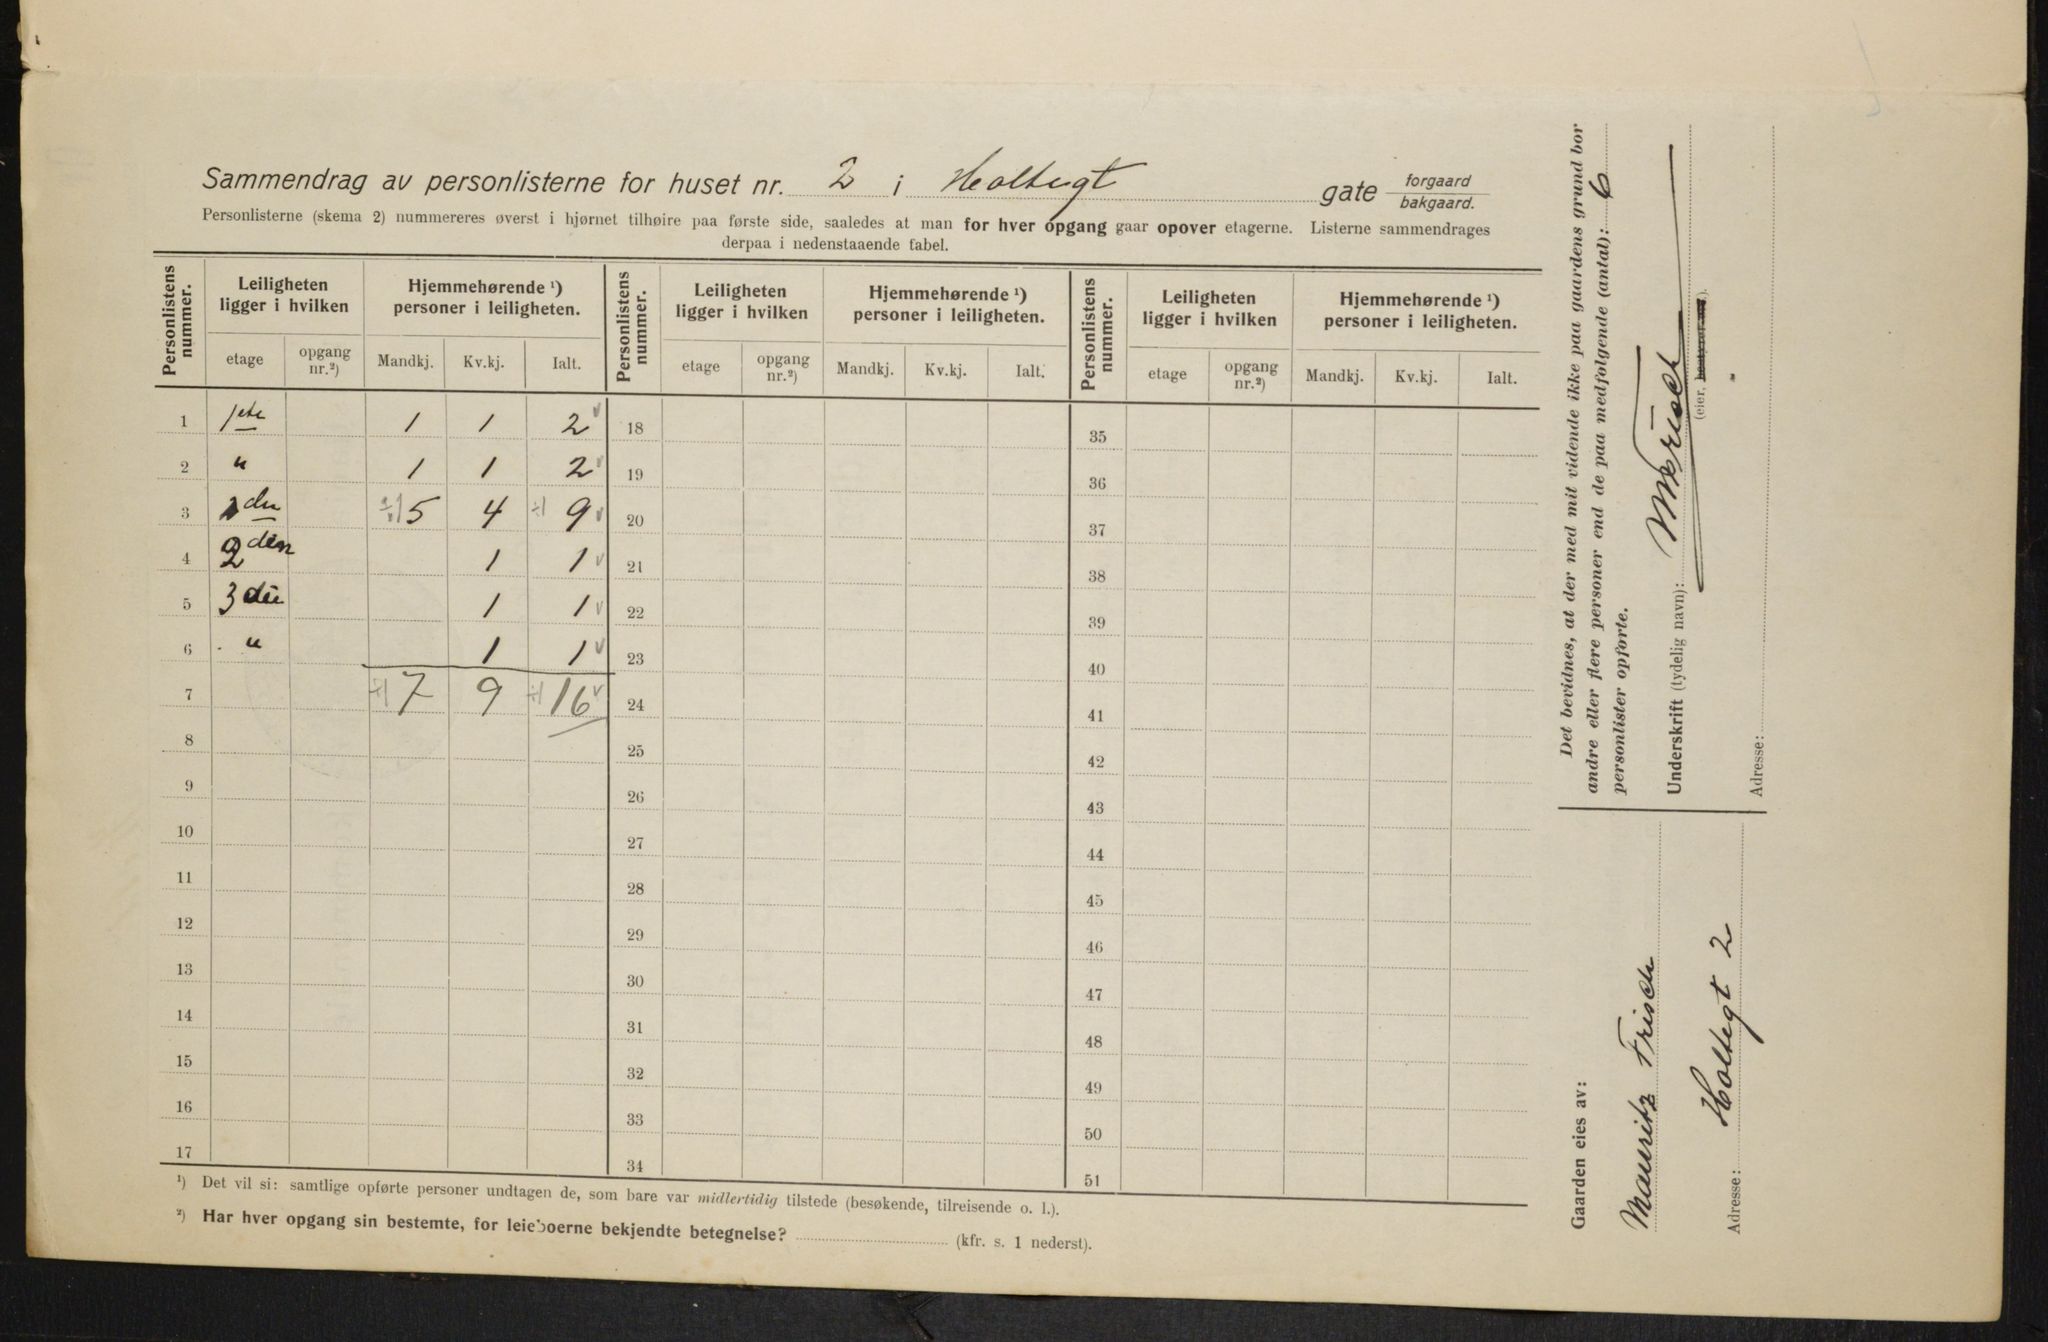 Sammendrag av personlisterne for huset nr. 2 i Holtegt gate forgaard
bakgaard.
Personlisterne (skema 2) nummereres øverst i hjørnet tilhøire paa første side, saaledes at man for hver opgang gaar opover etagerne. Listerne sammendrages
derpaa i nedenstaaende tabel.
Personlistens nummer. Leiligheten ligger i hvilken Hjemmehørende ¹) personer i leiligheten. Personlistens nummer. Leiligheten ligger i hvilken Hjemmehørende ¹) personer i leiligheten. Personlistens nummer. Leiligheten ligger i hvilken Hjemmehørende ¹) personer i leiligheten.
etage opgang nr.²) Mandkj. Kv.kj. Ialt. etage opgang nr.²) Mandkj. Kv.kj. Ialt. etage opgang nr.²) Mandkj. Kv.kj. Ialt.
1 1ste 1 1 2 18 35
2 " 1 1 2 19 36
3 den 5 4 9 20 37
4 2den 1 1 21 38
5 3die 1 1 22 39
6 " 1 1 23 40
7 7 9 16 24 41
8 25 42
9 26 43
10 27 44
11 28 45
12 29 46
13 30 47
14 31 48
15 32 49
16 33 50
17 34 51
¹) Det vil si: samtlige opførte personer undtagen de, som bare var midlertidig tilstede (besøkende, tilreisende o. l.).
²) Har hver opgang sin bestemte, for leieboerne bekjendte betegnelse? (kfr. s. 1 nederst).
Det bevidnes, at der med mit vidende ikke paa gaardens grund bor
andre eller flere personer end de paa medfølgende (antal): 6
personlister opførte.
Underskrift (tydelig navn): MFrisch
(eier, bestyrer).
Adresse:
Gaarden eies av:
Mauritz Frisch
Adresse: Holtegt 2